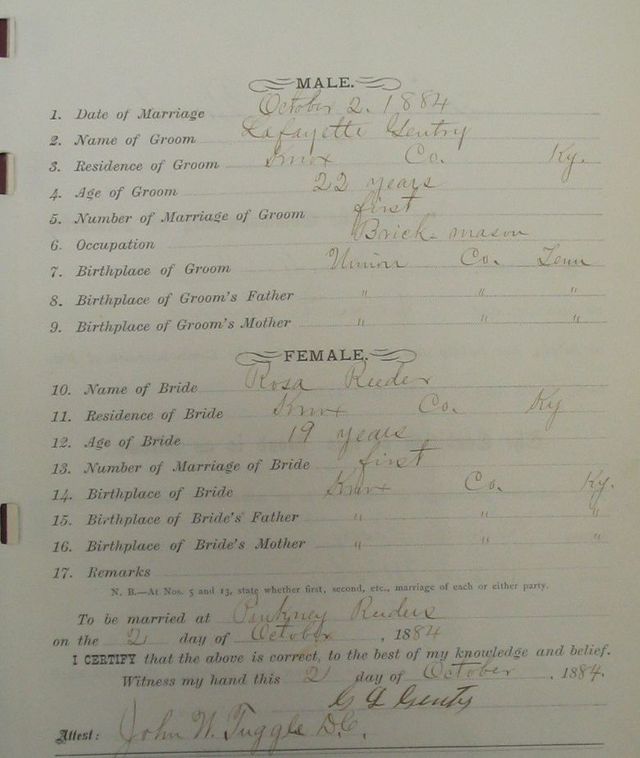 MALE.
1. Date of Marriage October 2. 1884
2. Name of Groom Lafayette Gentry
3. Residence of Groom Knox Co. Ky.
4. Age of Groom 22 years
5. Number of Marriage of Groom first
6. Occupation Brick-mason
7. Birthplace of Groom Union Co. Tenn
8. Birthplace of Groom's Father " " "
9. Birthplace of Groom's Mother " " "
FEMALE.
10. Name of Bride Rosa Reeder
11. Residence of Bride Knox Co. Ky
12. Age of Bride 19 years
13. Number of Marriage of Bride first
14. Birthplace of Bride Knox Co. Ky.
15. Birthplace of Bride's Father " " "
16. Birthplace of Bride's Mother " " "
17. Remarks
N. B.—At Nos. 5 and 13, state whether first, second, etc., marriage of each or either party.
To be married at Pinkney
on the 2 day of October, 1884
I CERTIFY that the above is correct, to the best of my knowledge and belief.
Witness my hand this 2 day of October, 1884.
G L Genty
Attest: John W. Tuggle D.C.